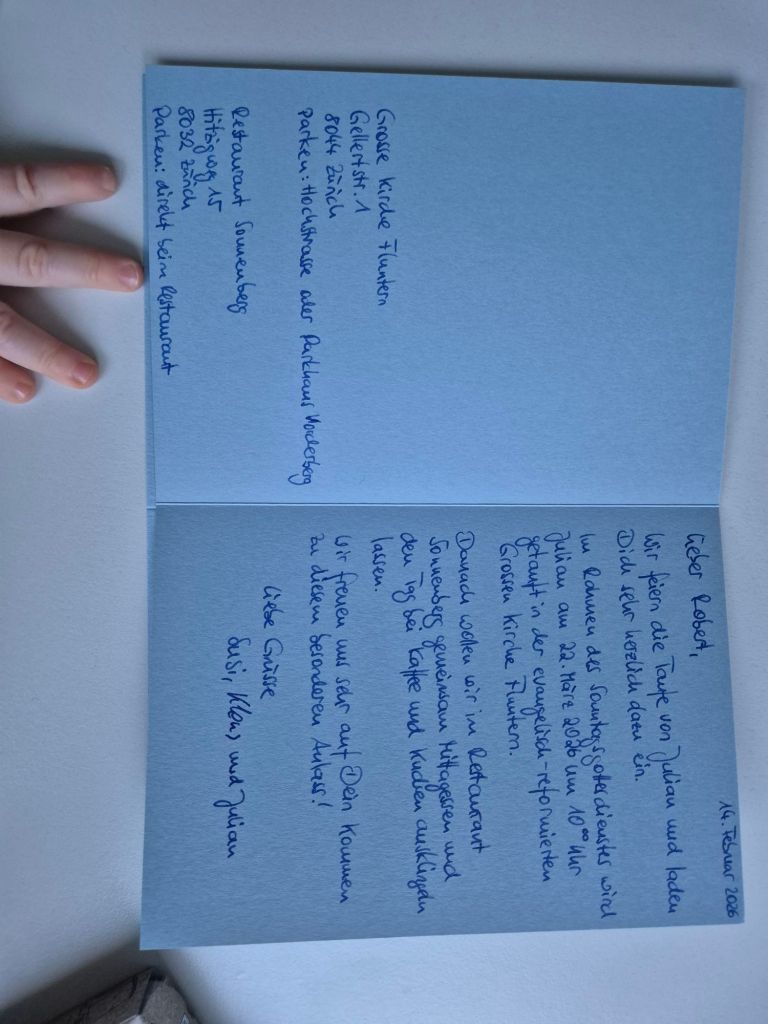 14. Februar 2026
Lieber Robert,
Wir feiern die Taufe von Julian und laden
Dich sehr herzlich dazu ein.
Im Rahmen des Sonntagsgottesdienstes wird
Julian am 22. März 2026 um 10⁰⁰ Uhr
getauft in der evangelisch-reformierten
Grossen Kirche Fluntern.
Danach wollen wir im Restaurant
Sonnenberg gemeinsam Mittagessen und
den Tag bei Kaffee und Kuchen ausklingen
lassen.
Wir freuen uns sehr auf Dein Kommen
zu diesem besonderen Anlass!
Liebe Grüsse
Susi, Klaus und Julian
Grosse Kirche Fluntern
Gellertstr. 1
8044 Zürich
Parken: Hochstrasse oder Parkhaus Vorderberg
Restaurant Sonnenberg
Hitzigweg 15
8032 Zürich
Parken: direkt beim Restaurant